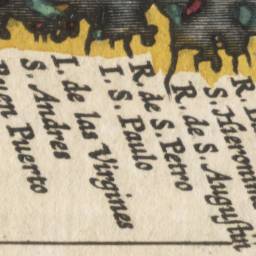 Buen Puerto
S. Andres
I. de las Virgines
I. S. Paulo
R. de S. Petro
R. de S. Auguſtin
S. Hieronimo
R.